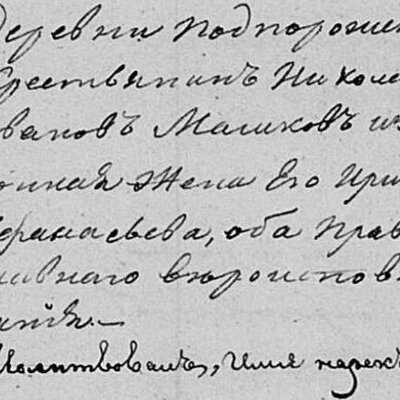 Деревни Подпороже
Крестьянинъ Никола
вановъ Машковъ и з
онная жена Его Ири
Афанасьева, оба Прав
лавнаго вѣроиспов
анія.—
Молитвовалъ, и имя нарекъ